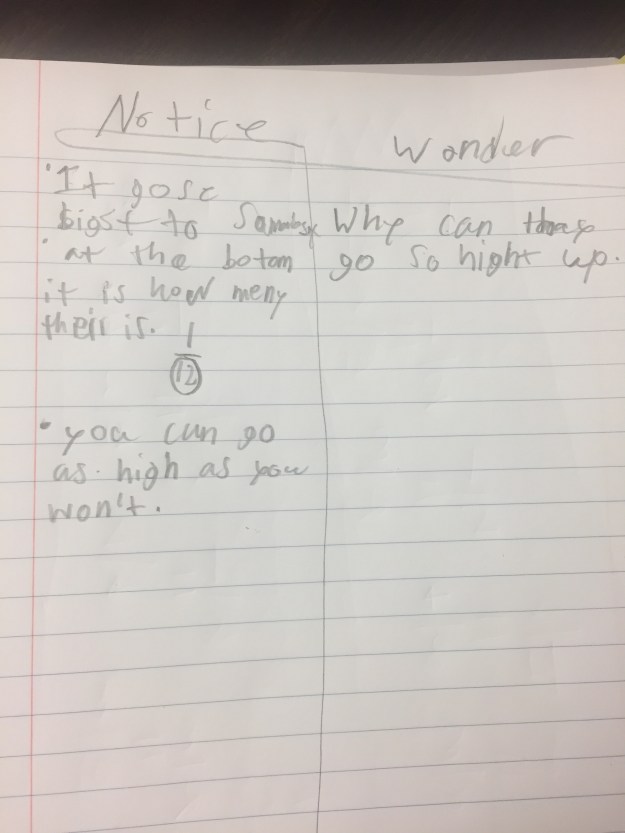 Notice
Wonder
· It gose
bigst to
· at the botom
it is how meny
their is. 1
12
· you can go
as high as you
won't.
Why can
go so hight up.